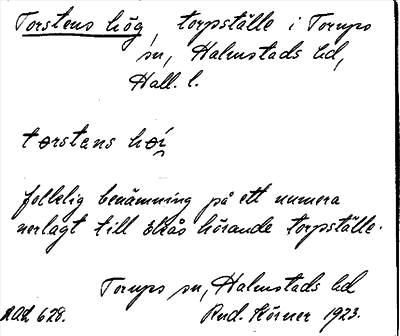 Torstens hög, torpställe i Torups
sn, Halmstads hd,
Hall. l.
torstens høi
folkelig benämning på ett numera
nerlagt till Ekås hörande torpställe.
Torups sn, Halmstads hd
A.O.d. 628. Rud. Körner 1923.